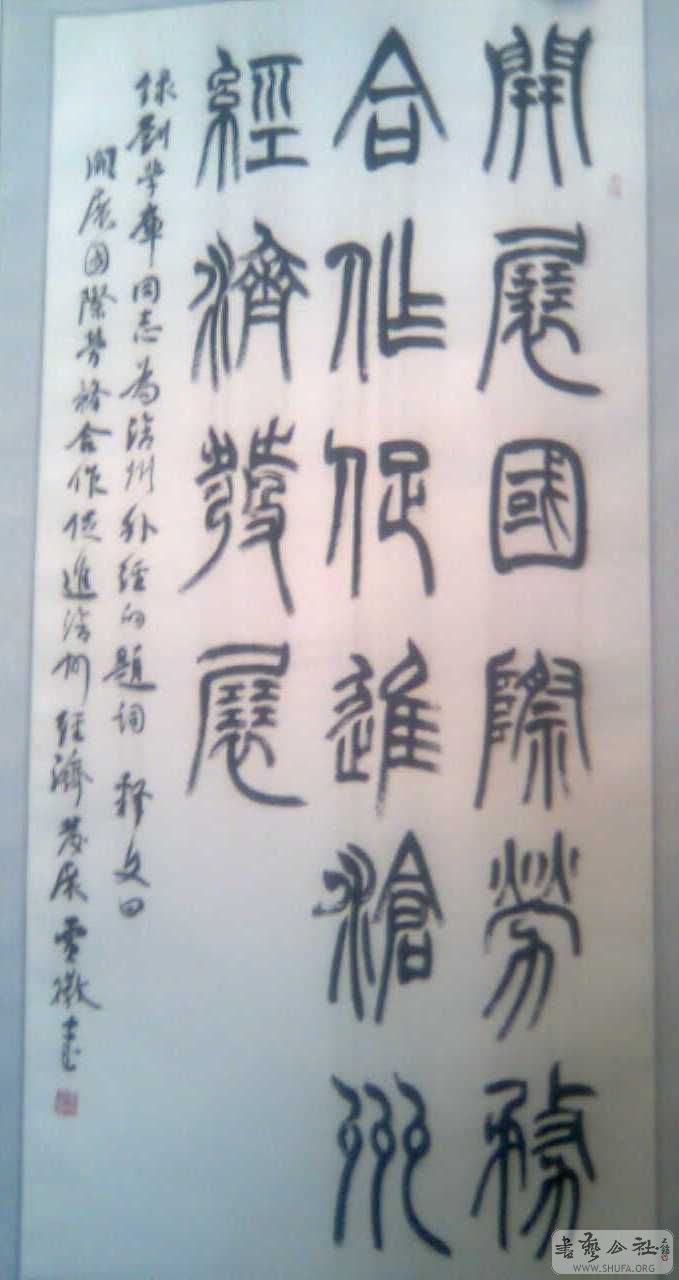 開展國際勞務
合作促進滄州
經濟發展
錄劉學庫同志為滄州外經的題詞 釋文曰
開展國際勞務合作促進滄州經濟發展 雪徵書
書藝公社
WWW.SHUFA.ORG